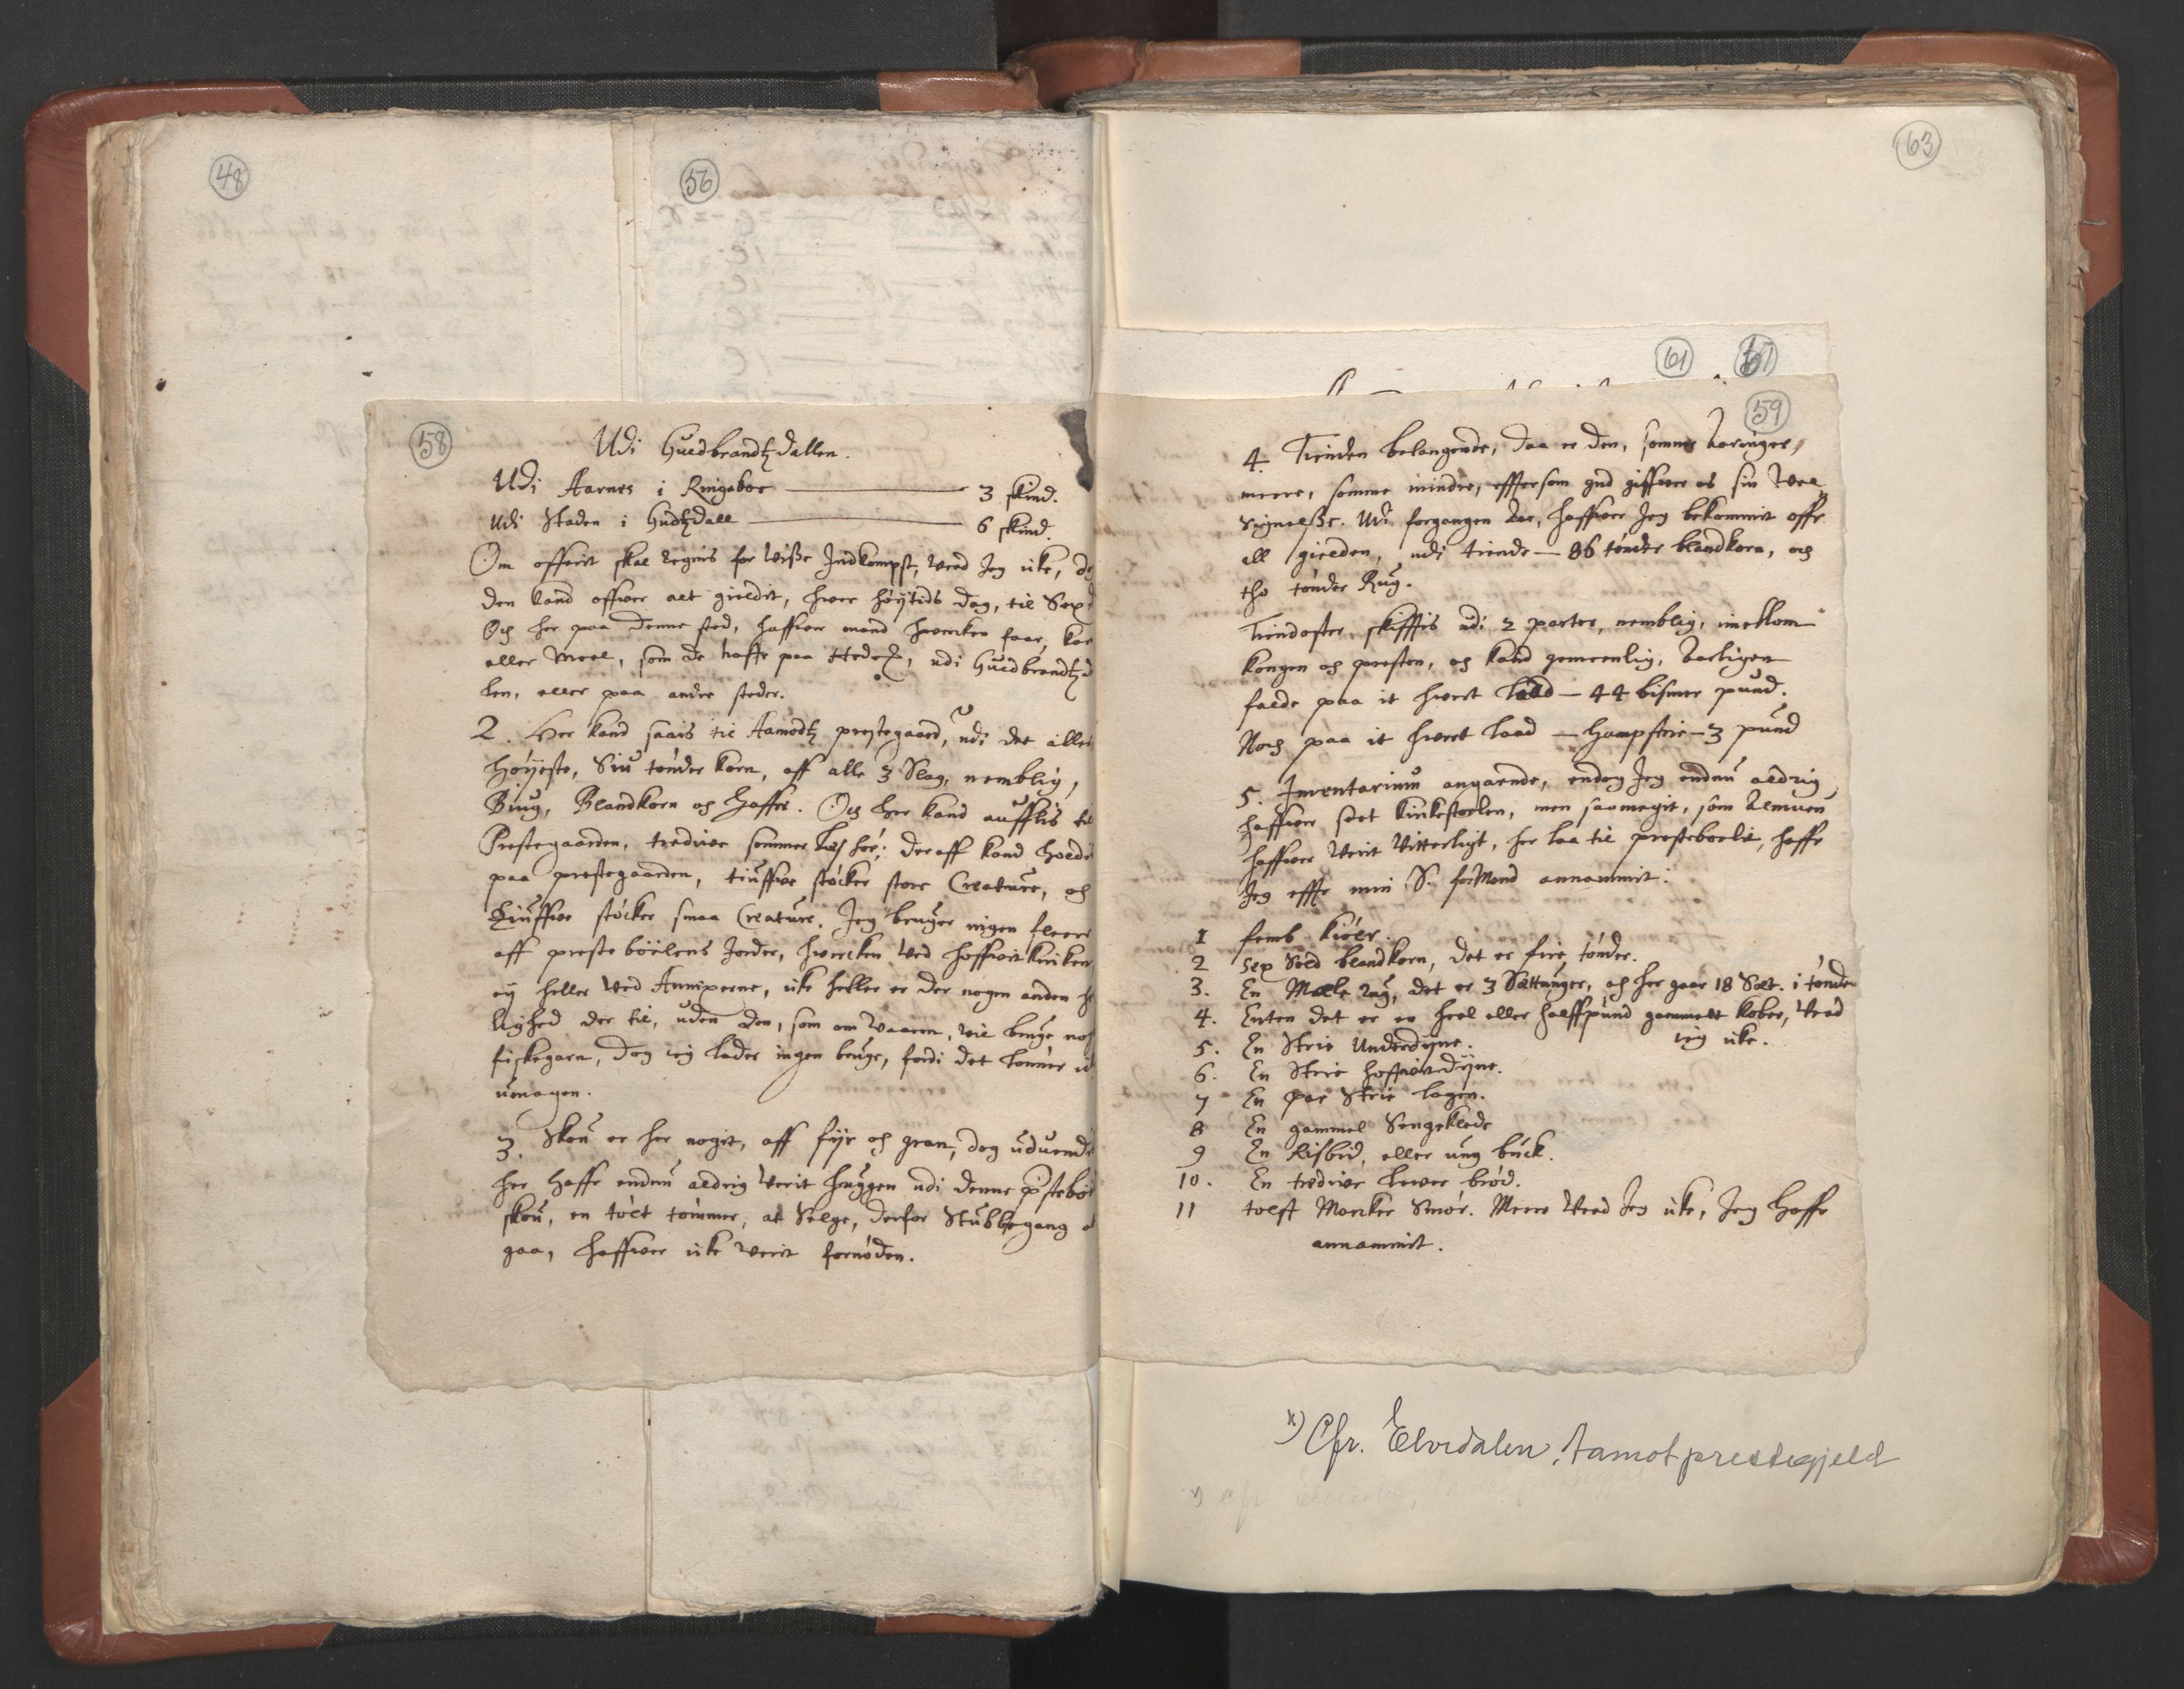 48
56
58
Udi Guedbrandtzdallen.
Udi Aarnes i Ringeboe — 3 skind.
Udi Staden i Gudtzdall — 6 skind.
Om offerit skal regnis for visse Indkompst, veed Jeg icke,
den Land offver alt gieldit, hver høytids dag, til
Och her paa denne sted, haffver mand hvercken faar,
eller Meel, som de haffe paa Hedem., udi Guedbrandtz
len, eller paa andre steder.
2. Her kand saais til Aamodtz prestegaard, udi det aller
høyeste, Siu tønder korn, aff alle 3 Slag, nemblig,
Biug, Blandkorn och Haffre. Och her kand aufflis til
Prestegaarden, tredive sommer Læs høe; deraff kand holdis
paa prestegaarden, tiuffve støcker store Creature, och
tiuffve støcker smaa Creature. Jeg bruger ingen fleere
aff preste böelens Jorder, hvercken ved hoffvit kircken,
ey heller ved Annexerne, icke heller er der nogen anden
lighed der til, uden den, som om Vaaren, vil bruge
fiskegarn, dog ieg lader ingen bruge, fordi det lønner
umagen.
3. Skou er her nogit, aff fyr och gran, dog
her haffr endnu aldrig verit huggen udi denne
skou, en tolt tømmer, at Selge, derfor Stubbegang
gaa, haffver icke verit fornøden.
63
61
59
4. Tienden belangende, daa er den, somme Aaringer,
meere, somme mindre, efftersom gud giffver os sin Vel
signelsse. Udi forgangen Aar, haffver Jeg bekommit offr
all gielden, udi tiende — 86 tønder blandkorn, och
tho tønder Rug.
Tiendoster skifftis udi 2 parter, nemblig, imellom
kongen och presten, och kand gemeenlig, Aarligen
falde paa it hvert laad — 44 bismer pund.
Noch paa it hvert laad — Hampetiie — 3 pund
5. Inventarium angaende, endog Jeg endnu aldrig
haffver seet kirkestoelen, men saamegit, som Almuen
haffver verit vitterligt, her laa til presteboelit, haffr
Jeg efftr min S. forMand annammit.
1 femb kiøer.
2 Sex Sold blandkorn, det er fire tønder.
3. En Mæle rug, det er 3 Sættunger, och her gaar 18 Sæt. i tønden
4. Enten det er en heel eller halffpund gammelt kober, veed
ieg icke.
5. En Strie Underdyne.
6. En Strie hoffvitdyne.
7 En par Strie lagen.
8 En gammel Sengeklede
9 En Kisbid, eller ung buck.
10. En tredive lever brød.
11 tolft Marcker Smør. Meere veed Jeg icke, Jeg haffr
annammit.
x) Cfr. Elvedalen, Aamot prestegjeld